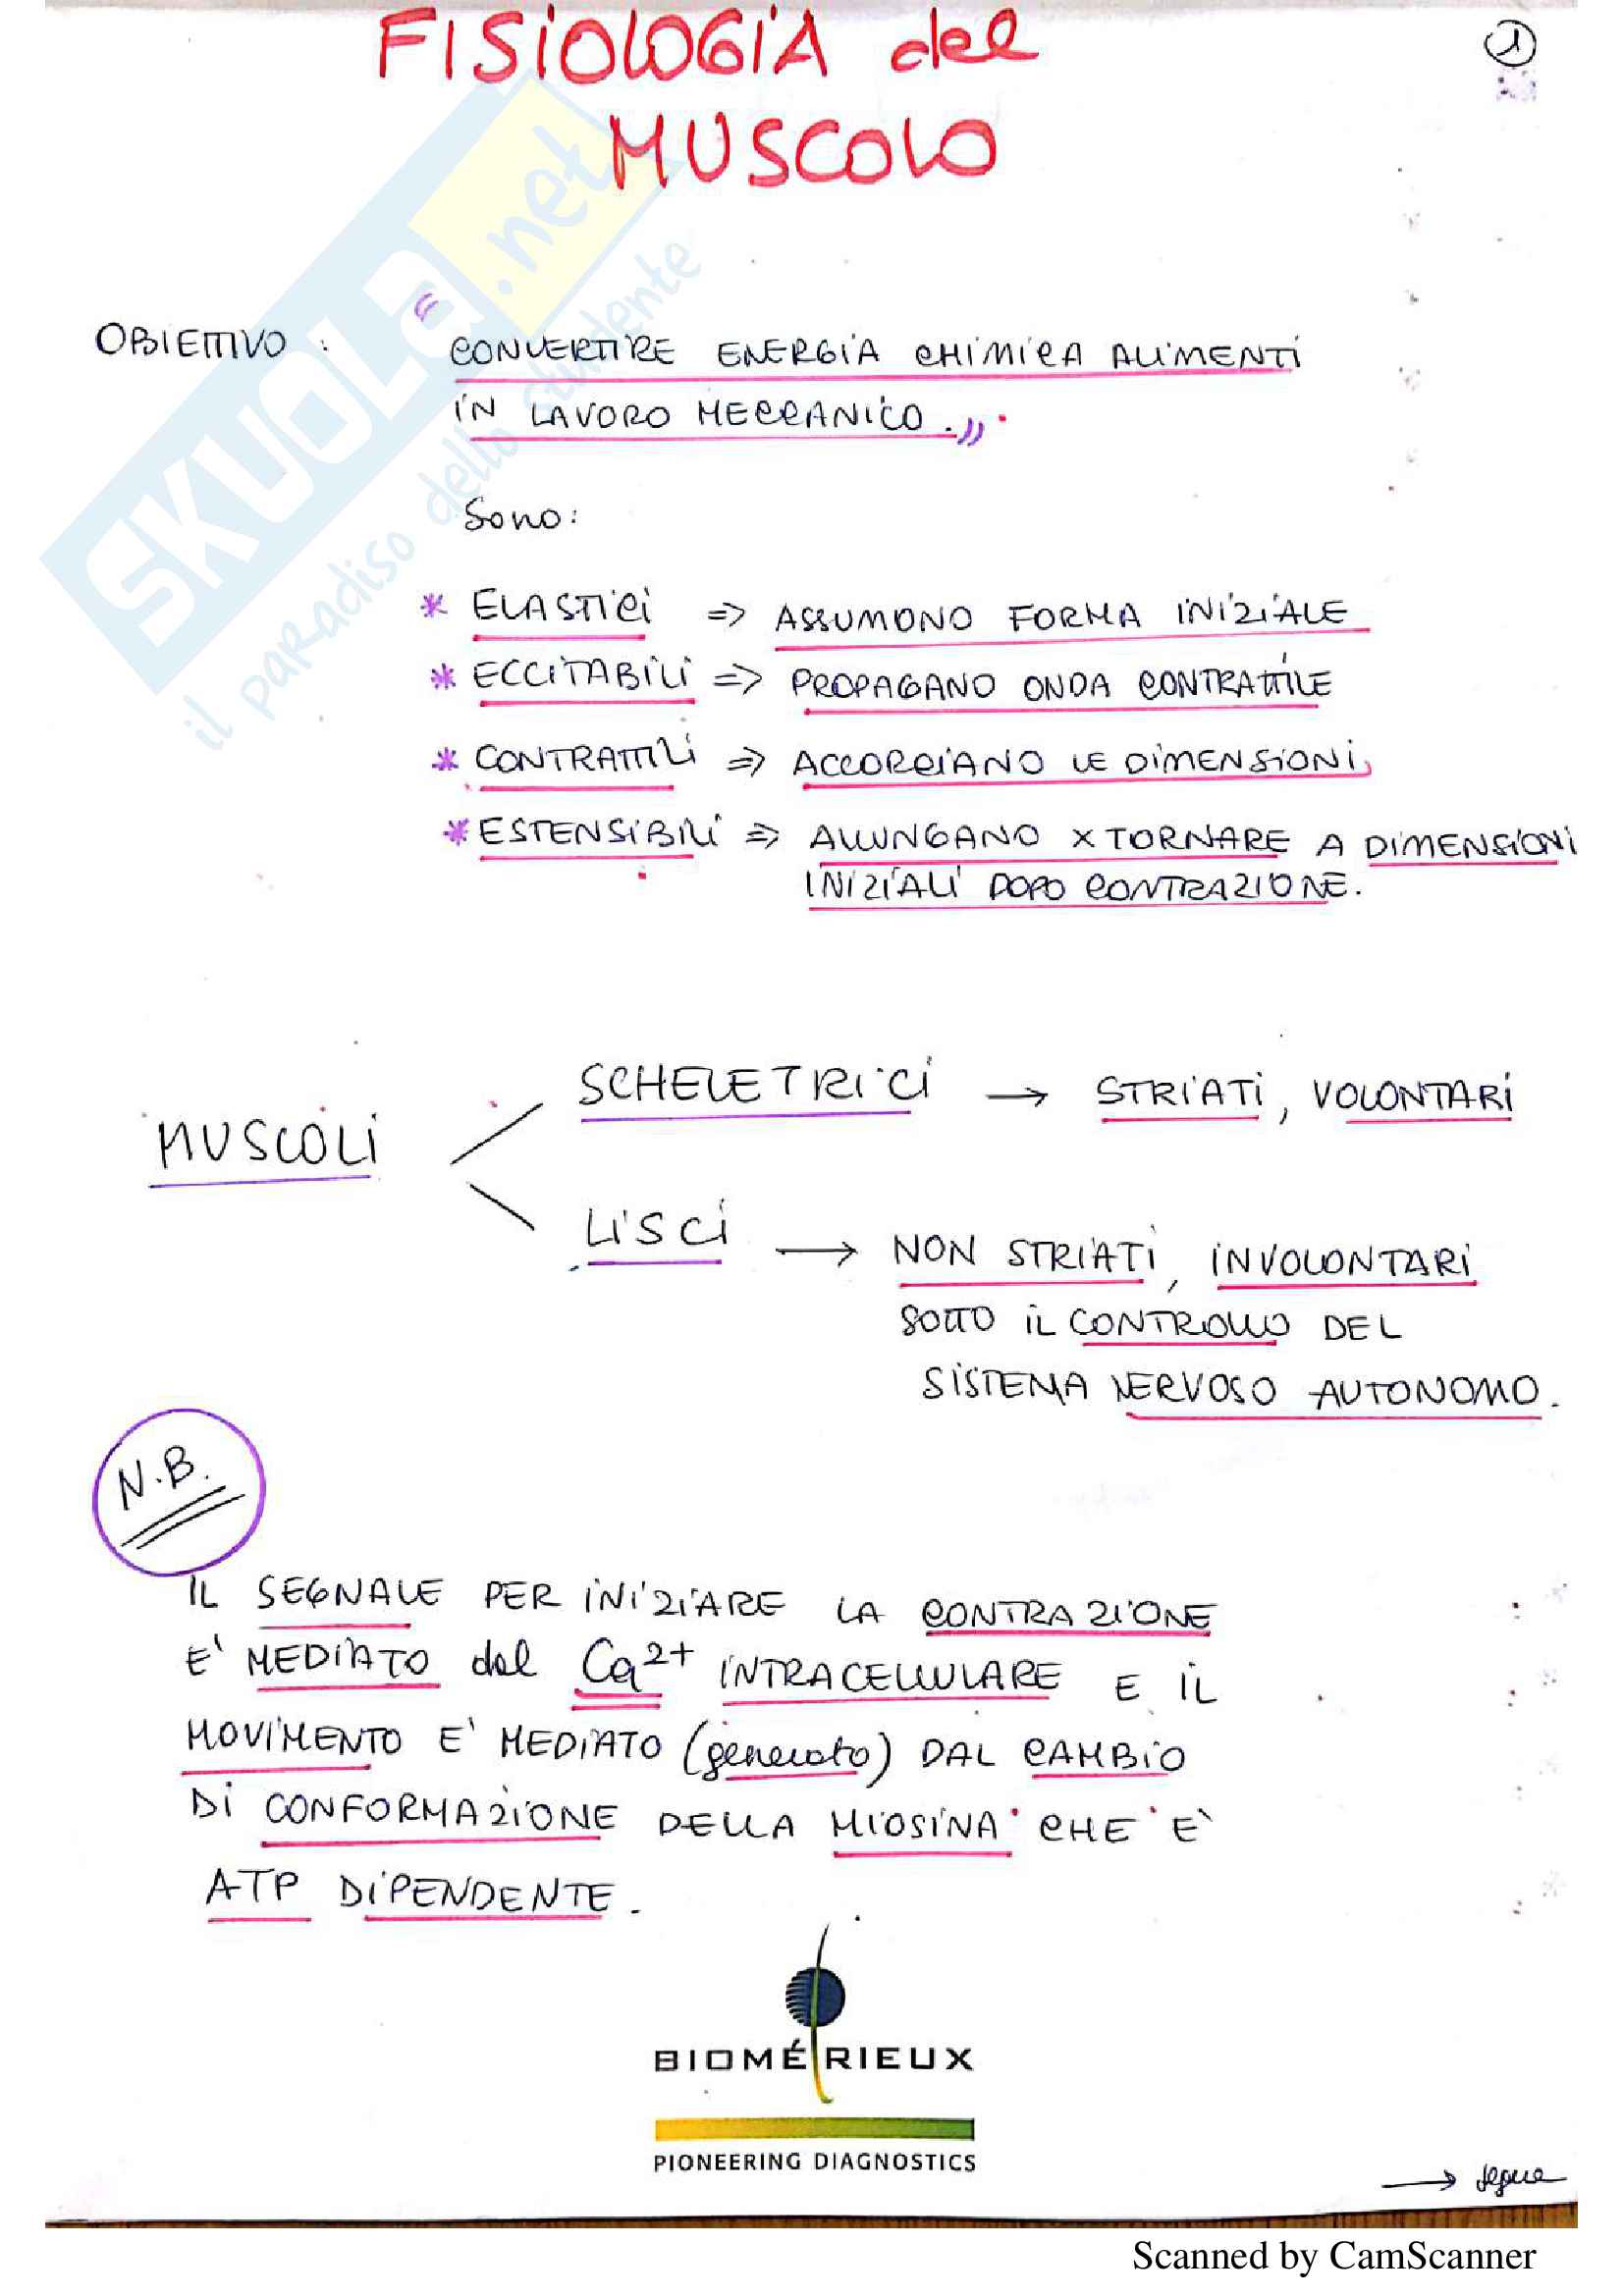 FISIOLOGIA del
MUSCOLO
1
SKUOLA.net
il paradiso dello studente
OBIETTIVO : "CONVERTIRE ENERGIA CHIMICA ALIMENTI
IN LAVORO MECCANICO."
Sono:
* ELASTICI => ASSUMONO FORMA INIZIALE
* ECCITABILI => PROPAGANO ONDA CONTRATTILE
* CONTRATTILI => ACCORCIANO LE DIMENSIONI,
* ESTENSIBILI => ALLUNGANO X TORNARE A DIMENSIONI
INIZIALI DOPO CONTRAZIONE.
MUSCOLI
SCHELETRICI → STRIATI, VOLONTARI
LISCI → NON STRIATI, INVOLONTARI
SOTTO IL CONTROLLO DEL
SISTEMA NERVOSO AUTONOMO.
N.B.
IL SEGNALE PER INIZIARE LA CONTRAZIONE
E' MEDIATO dal Ca²⁺ INTRACELLULARE E IL
MOVIMENTO E' MEDIATO (generato) DAL CAMBIO
DI CONFORMAZIONE DELLA MIOSINA CHE E'
ATP DIPENDENTE.
BIOMÉRIEUX
PIONEERING DIAGNOSTICS
→ segue
Scanned by CamScanner